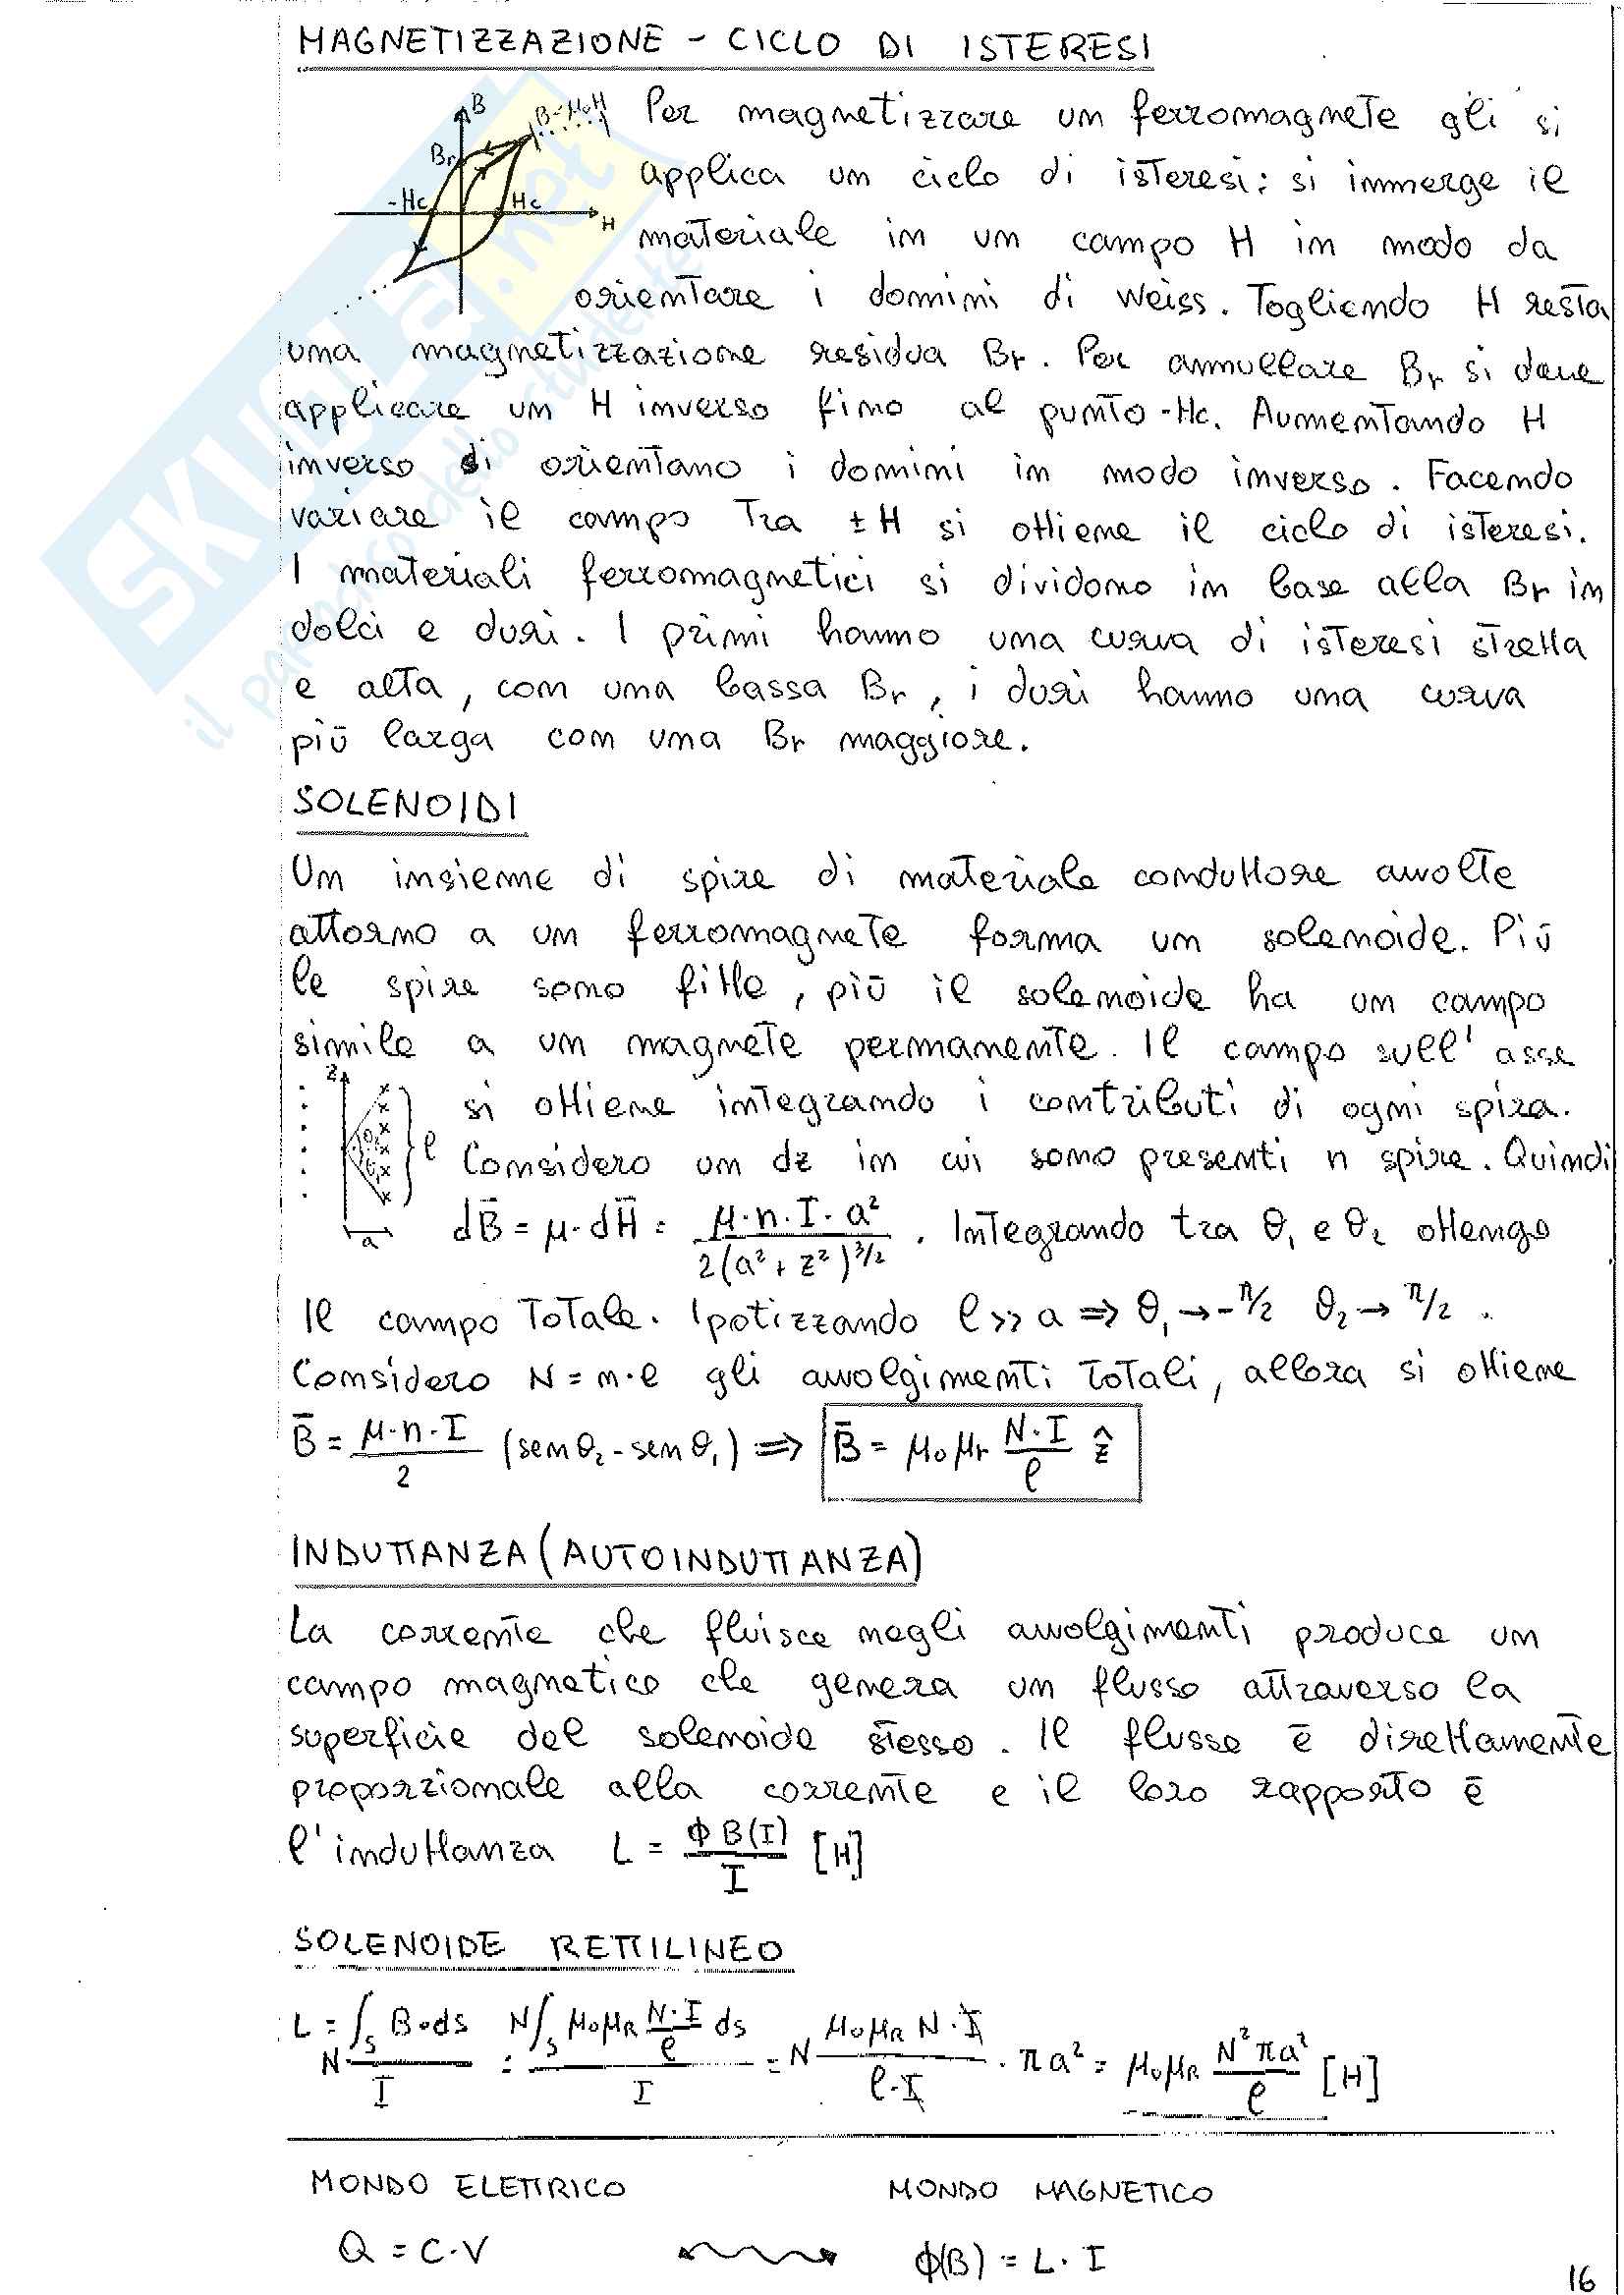 MAGNETIZZAZIONE - CICLO DI ISTERESI
B
B=μ0H
Br
-Hc
Hc
H
Per magnetizzare un ferromagnete gli si
applica un ciclo di isteresi: si immerge il
materiale in un campo H in modo da
orientare i domini di Weiss. Togliendo H resta
una magnetizzazione residua Br. Per annullare Br si deve
applicare un H inverso fino al punto -Hc. Aumentando H
inverso si orientano i domini in modo inverso. Facendo
variare il campo tra ±H si ottiene il ciclo di isteresi.
I materiali ferromagnetici si dividono in base alla Br in
dolci e duri. I primi hanno una curva di isteresi stretta
e alta, con una bassa Br, i duri hanno una curva
più larga con una Br maggiore.
SOLENOIDI
Un insieme di spire di materiale conduttore avvolte
attorno a un ferromagnete forma un solenoide. Più
le spire sono fitte, più il solenoide ha un campo
simile a un magnete permanente. Il campo sull'asse
si ottiene integrando i contributi di ogni spira.
z
l
a
Considero un dz in cui sono presenti n spire. Quindi
dB̄ = μ·dH̄ = μ·n·I·a² / 2(a²+z²)^3/2 . Integrando tra θ₁ e θ₂ ottengo
il campo totale. Ipotizzando l>>a ⇒ θ₁→-π/2 θ₂→π/2 .
Considero N=n·l gli avvolgimenti totali, allora si ottiene
B̄ = μ·n·I / 2 (senθ₂-senθ₁) ⇒ B̄ = μ₀μr N·I / l ẑ
INDUTTANZA (AUTOINDUTTANZA)
La corrente che fluisce negli avvolgimenti produce un
campo magnetico che genera un flusso attraverso la
superficie del solenoide stesso. Il flusso è direttamente
proporzionale alla corrente e il loro rapporto è
l'induttanza L = ΦB(I) / I [H]
SOLENOIDE RETTILINEO
L = N ∫s B•ds / I = N∫s μ₀μR N·I/l ds / I = N μ₀μR N·I / l·I · πa² = μ₀μR N²πa² / l [H]
MONDO ELETTRICO MONDO MAGNETICO
Q = C·V ↔ Φ(B) = L·I
16
SKUOLA.net
il paradiso dello studente